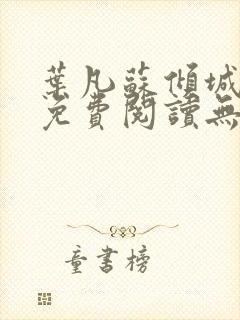 葉凡蘇傾城
免費閱讀無
童書榜